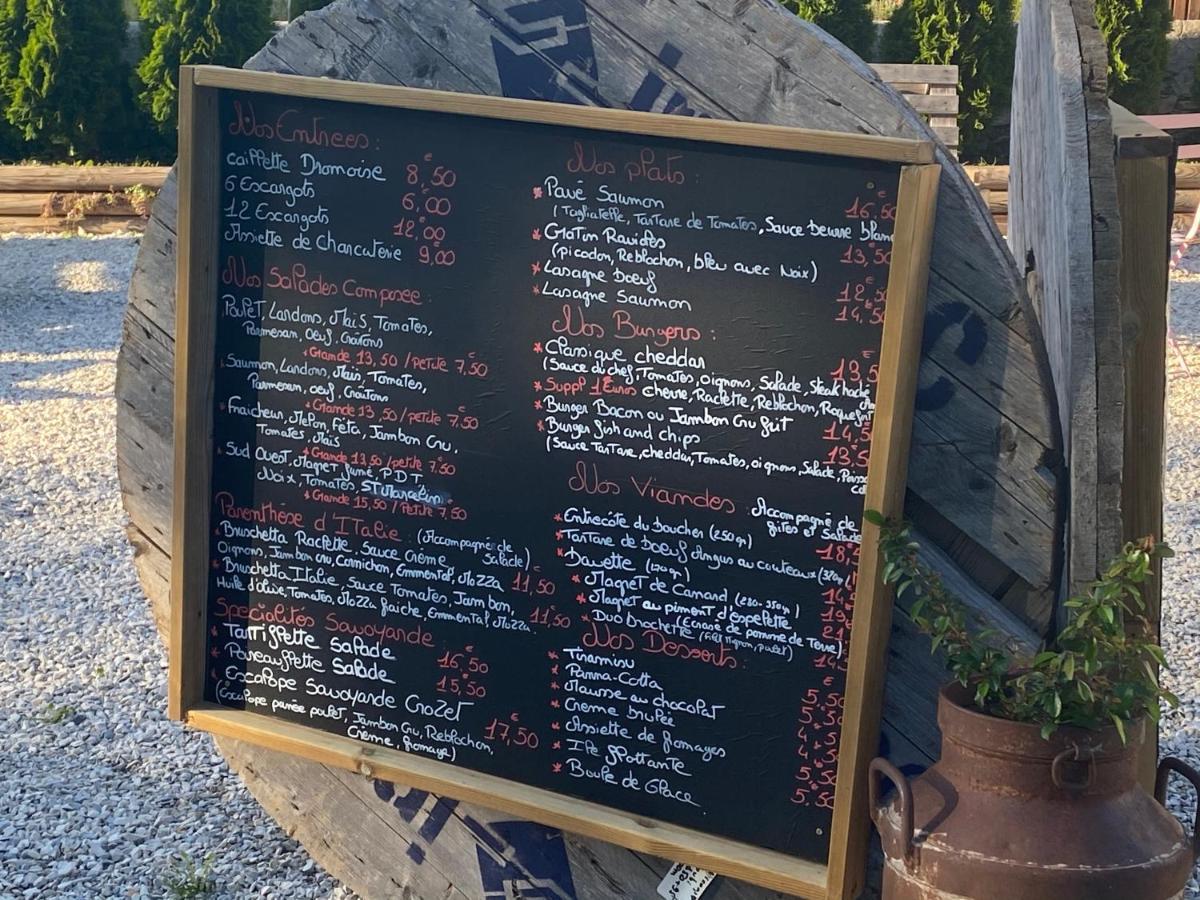 Nos Entrees :
caillette Dromoise 8€,50
6 Escargots 6€,00
12 Escargots 12€,00
Assiette de Charcuterie 9€,00
Nos Salades Composee :
Poulet, Lardons, Maïs, Tomates,
Parmesan, Oeuf, Croûtons
* Grande 13,50 / petite 7€,50
Saumon, Lardons, Maïs, Tomates,
Parmesan, oeuf, Croûtons
* Grande 13,50 / petite 7€,50
Fraicheur, Melon, Féta, Jambon Cru,
Tomates, Maïs
* Grande 13,50 / petite 7€,50
Sud Ouest, Magret fumé, P.D.T,
Noix, Tomates, ST Marcellin
* Grande 15,50 / petite 7,50
Parenthèse d'ITalie : (Accompagnée de
Salade)
* Bruschetta Raclette, Sauce Crème
Oignons, Jambon cru, Cornichon, Emmental, Mozza 11€,50
* Bruschetta Italie, Sauce Tomates, Jambon,
Huile d'Olive, Tomates, Mozza fraiche, Emmental, Mozza. 11€,50
Specialités Savoyarde
* Tartiflette Salade 16€,50
* Raviaflette Salade 15€,50
* Escalope Savoyarde Crozet
(Escalope panée poulet, Jambon Cru, Reblochon, 17€,50
Crème, fromage)
Nos plats :
* Pavé Saumon 16,50
(Tagliatelle, Tartare de Tomates, Sauce beurre blanc
* Gratin Ravioles 13,50
(picodon, Reblochon, bleu avec Noix)
* Lasagne boeuf 12,50
* Lasagne Saumon 14,50
Nos Burgers :
* Classique cheddar 13,5
(Sauce du chef, Tomates, oignons, Salade, Steak haché
* Suppl 1 Euros chèvre, Raclette, Reblochon, Roquefort
* Burger Bacon ou Jambon Cru frit 14,5
* Burger fish and chips 13,5
(Sauce Tartare, cheddar, Tomates, oignons, Salade, Poisso
Nos Viandes : Accompagné de
frites et Salade
* Entrecôte du boucher (250gr) 18,
* Tartare de boeuf Angus au couteaux
* Bavette 14
* Magret de Canard
* Magret au piment d'espelette
(Ecrasé de pomme de Terre)
* Duo brochette (Filet Mignon, poulet)
Nos Desserts :
* Tiramisu
* Panna-Cotta 5,50
* Mousse au chocolat
* Crème brûlée
* Assiette de fromages
* Ile flottante 5,50
* Boule de Glace